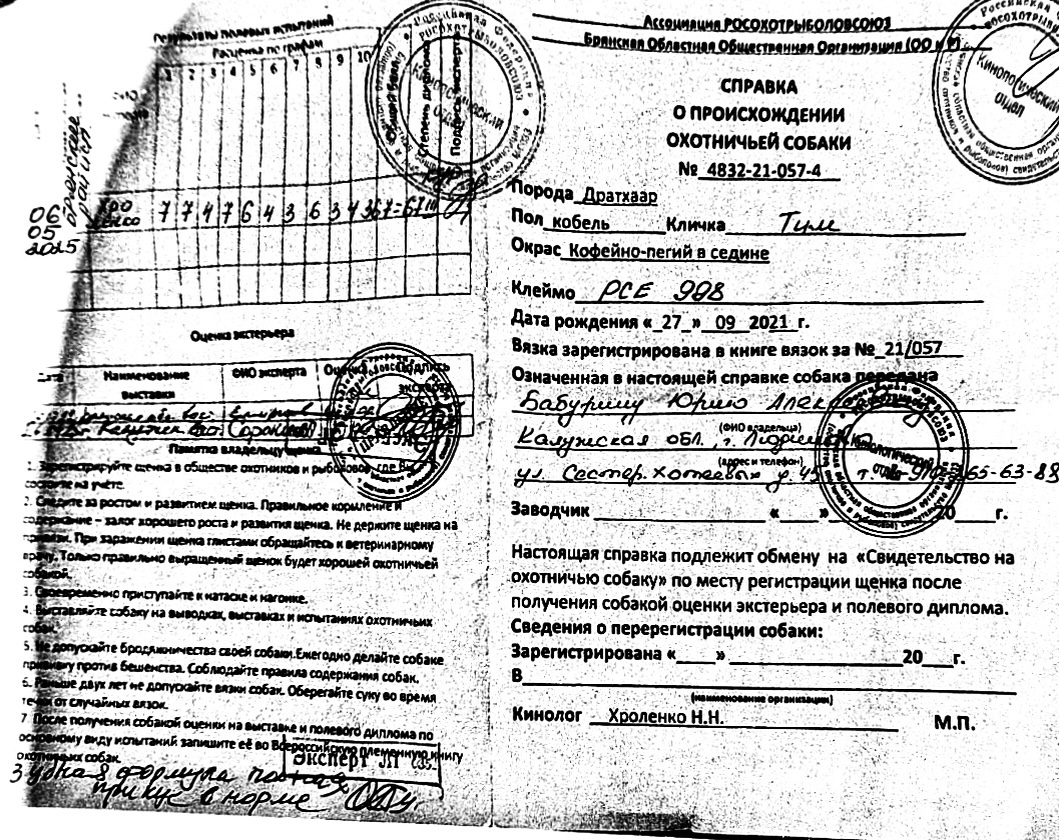 Результаты полевых испытаний
Расценка по графам
1 2 3 4 5 6 7 8 9 10
Общий балл
Степень диплома
Подпись эксперта
06 05 2025
7 7 4 7 6 4 3 6 3 4
Оценка экстерьера
Наименование выставки
ФИО эксперта
Оценка
Подпись эксперта
Памятка владельцу щенка
1. Зарегистрируйте щенка в обществе охотников и рыболовов, где Вы
состоите на учёте.
2. Следите за ростом и развитием щенка. Правильное кормление и
содержание – залог хорошего роста и развития щенка. Не держите щенка на
привязи. При заражении щенка глистами обращайтесь к ветеринарному
врачу. Только правильно выращенный щенок будет хорошей охотничьей
собакой.
3. Своевременно приступайте к натаске и нагонке.
4. Выставляйте собаку на выводках, выставках и испытаниях охотничьих
собак.
5. Не допускайте бродяжничества своей собаки.Ежегодно делайте собаке
прививку против бешенства. Соблюдайте правила содержания собак.
6. Раньше двух лет не допускайте вязки собак. Оберегайте суку во время
течки от случайных вязок.
7. После получения собакой оценки на выставке и полевого диплома по
основному виду испытаний запишите её во Всероссийскую племенную книгу
охотничьих собак.
Эксперт
Зубная формула полная
прикус в норме
Ассоциация РОСОХОТРЫБОЛОВСОЮЗ
Брянская Областная Общественная Организация (ОО и Р)
СПРАВКА
О ПРОИСХОЖДЕНИИ
ОХОТНИЧЬЕЙ СОБАКИ
№ 4832-21-057-4
Порода Дратхаар
Пол кобель Кличка Тим
Окрас Кофейно-пегий в седине
Клеймо РСЕ 998
Дата рождения « 27 » 09 2021 г.
Вязка зарегистрирована в книге вязок за № 21/057
Означенная в настоящей справке собака передана
Бабурину Юрию Алек
(ФИО владельца)
Калужская обл. г. Людиново
(адрес и телефон)
ул. 65-63-88
Заводчик « » 20 г.
Настоящая справка подлежит обмену на «Свидетельство на
охотничью собаку» по месту регистрации щенка после
получения собакой оценки экстерьера и полевого диплома.
Сведения о перерегистрации собаки:
Зарегистрирована « » 20 г.
В
(наименование организации)
Кинолог Хроленко Н.Н. М.П.
Кинологический отдел
РОСОХОТРЫБОЛОВСОЮЗ
Кинологический отдел
Кинологический отдел